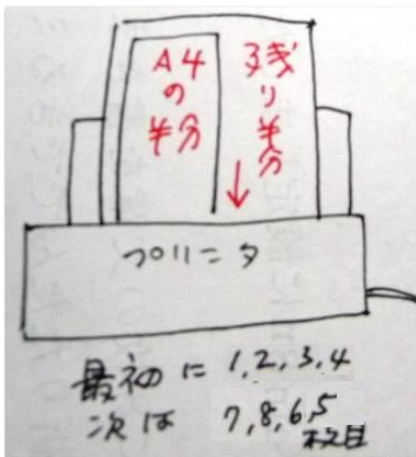 A4
の
半分
残り半分
プリンタ
最初に 1,2,3,4
次は 7,8,6,5
枚目